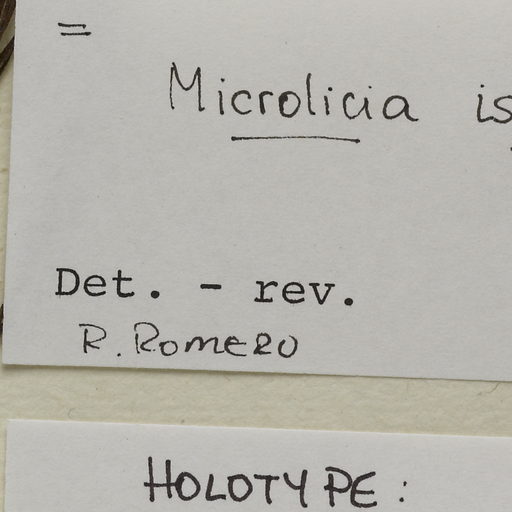 =
Microlicia is
Det. - rev.
R. ROMERO
HOLOTYPE: